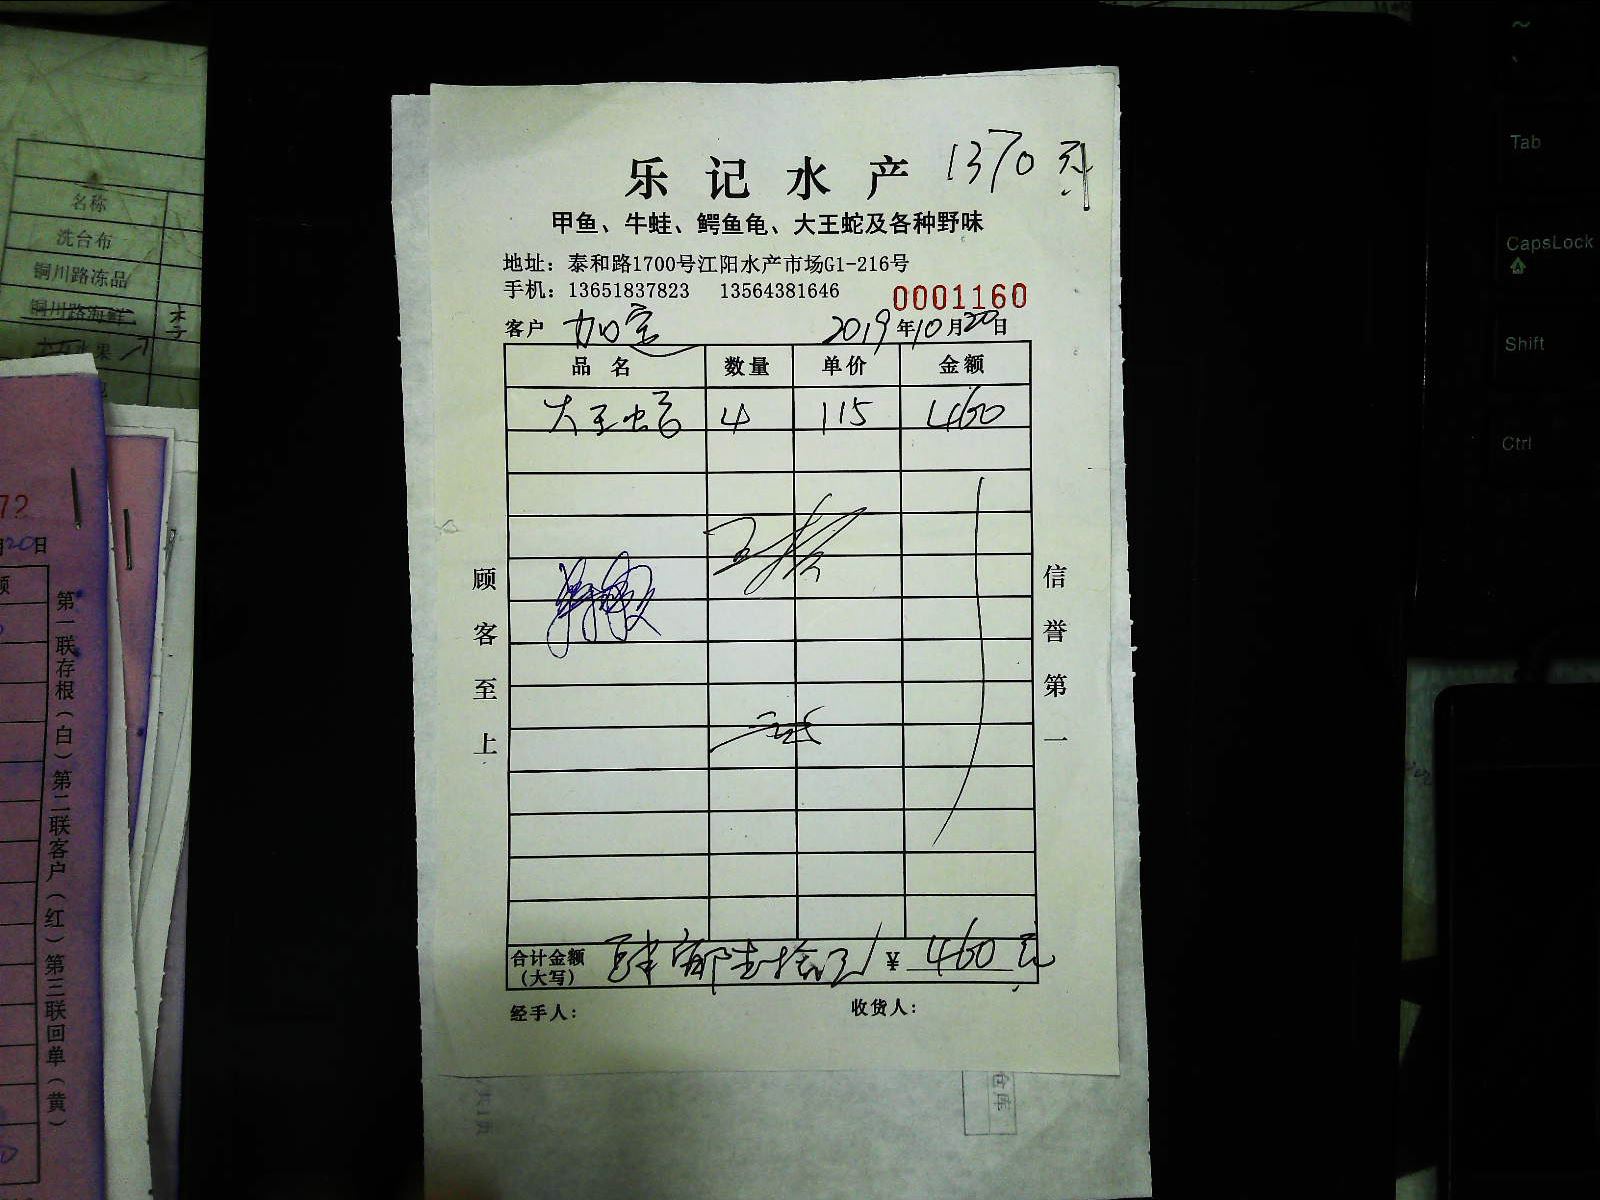 乐记水产
1370元
甲鱼、牛蛙、鳄鱼龟、大王蛇及各种野味
地址：泰和路1700号江阳水产市场G1-216号
手机：13651837823 13564381646
0001160
客户 加定 2019年10月20日
品名 数量 单价 金额
大王蛇 4 115 460
顾客至上
信誉第一
合计金额（大写） 肆佰陆拾元 ¥ 460元
经手人：
收货人：
名称
洗台布
铜川路冻品
铜川路海鲜
水果
72
月20日
额
第一联存根（白）第二联客户（红）第三联回单（黄）
仓库
~
Tab
CapsLock
Shift
Ctrl